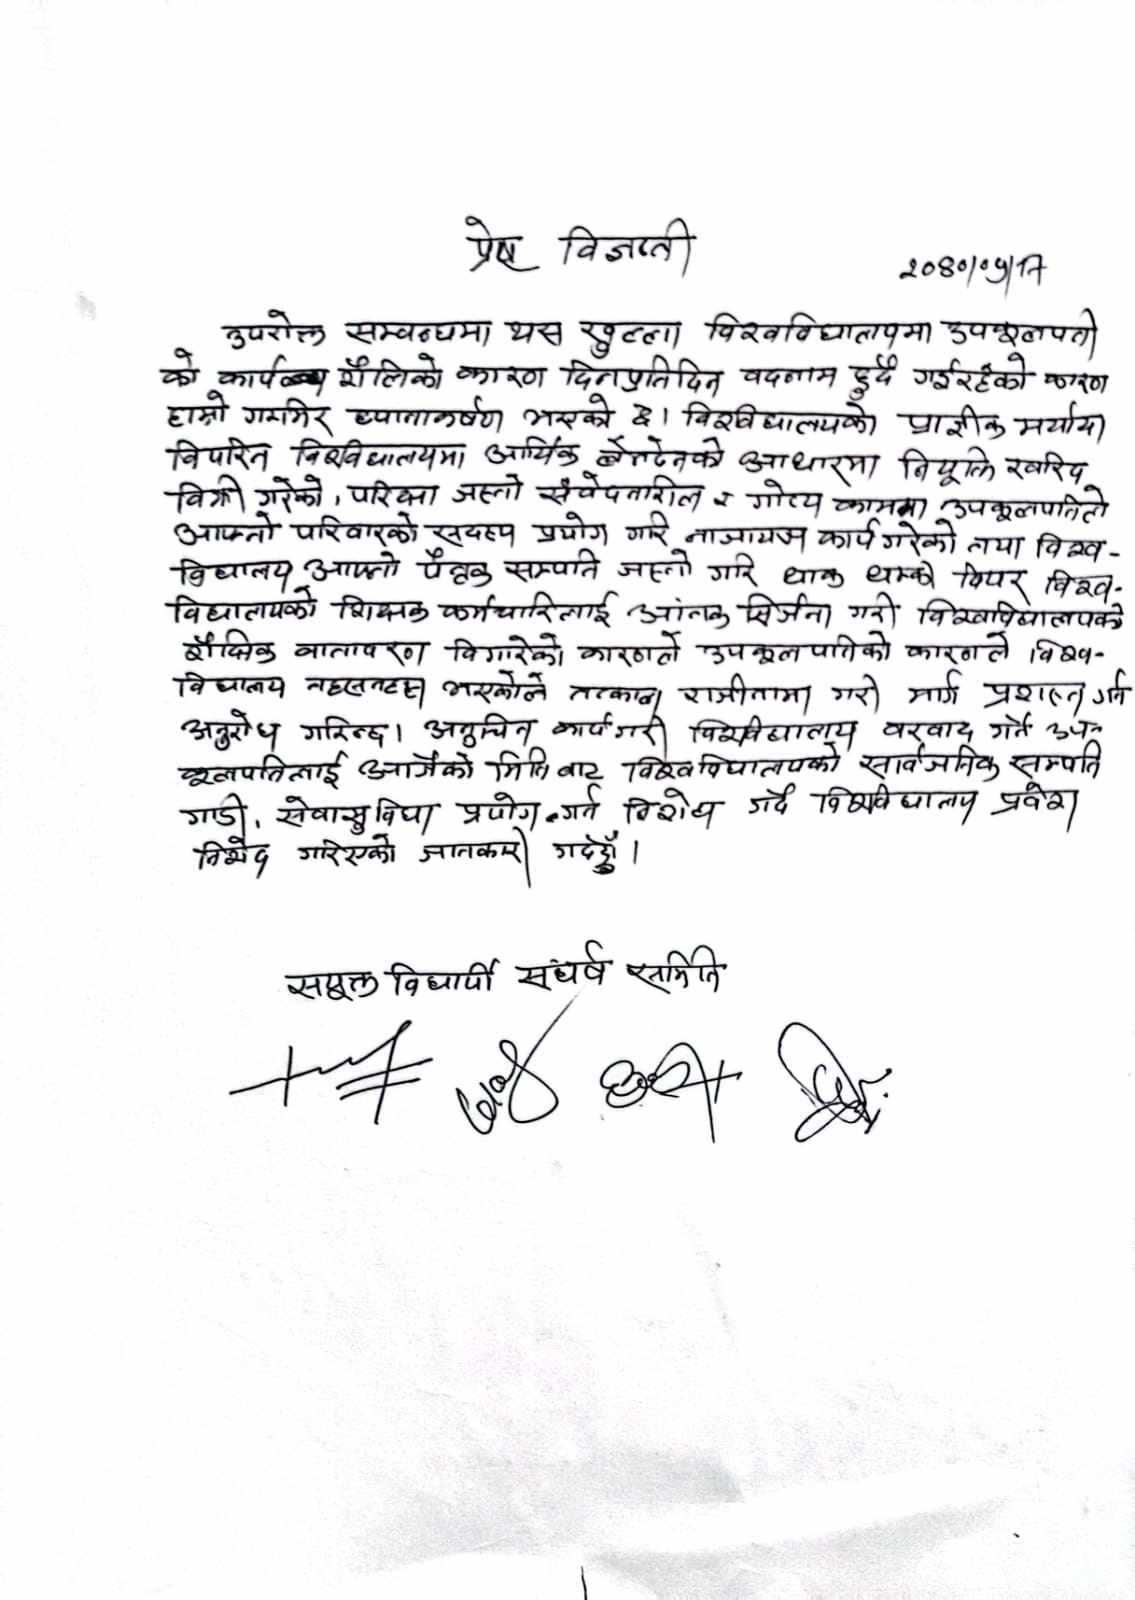 प्रेष विज्ञप्ती
२०८०/०५/१७
उपरोक्त सम्वन्धमा यस खुल्ला विश्वविद्यालयमा उपकूलपती
को कार्य शैलिको कारण दिनप्रतिदिन वदनाम हुदै गईरहेको कारण
हाम्रो गम्भिर ध्यानाकर्षण भएको छ। विश्वविद्यालयको प्राज्ञीक मर्यादा
विपरित विश्वविद्यालयमा आर्थिक लेनदेनको आधारमा नियूक्ति खरिद
विक्री गरेको, परिक्षा जस्तो संवेदनशिल र गोप्य काममा उपकूलपतिले
आफ्नो परिवारको सदस्य प्रयोग गरि नाजायज कार्य गरेको तथा विश्व-
विद्यालय आफ्नो पैतृक सम्पति जस्तो गरि धाक धम्की दिएर विश्व-
विद्यालयको शिक्षक कर्मचारिलाई आंतक सिर्जना गरी विश्वविद्यालयको
शैक्षिक वातावरण विगारेको कारणले उपकूलपतिको कारणले विश्व-
विद्यालय तहसनहस भएकोले तत्काल राजीनामा गरी मार्ग प्रशस्त गर्न
अनुरोध गरिन्छ। अनुचित कार्य गरी विश्वविद्यालय वरवाद गर्ने उप-
कूलपतिलाई आजैको मिति बाट विश्वविद्यालयको सार्वजनिक सम्पति
गाडी, सेवासुविधा प्रयोग गर्न विरोध गर्दै विश्वविद्यालय प्रवेश
निषेद गरिएको जानकारी गर्दछौँ।
सयूक्त विद्यार्थी संघर्ष समिति